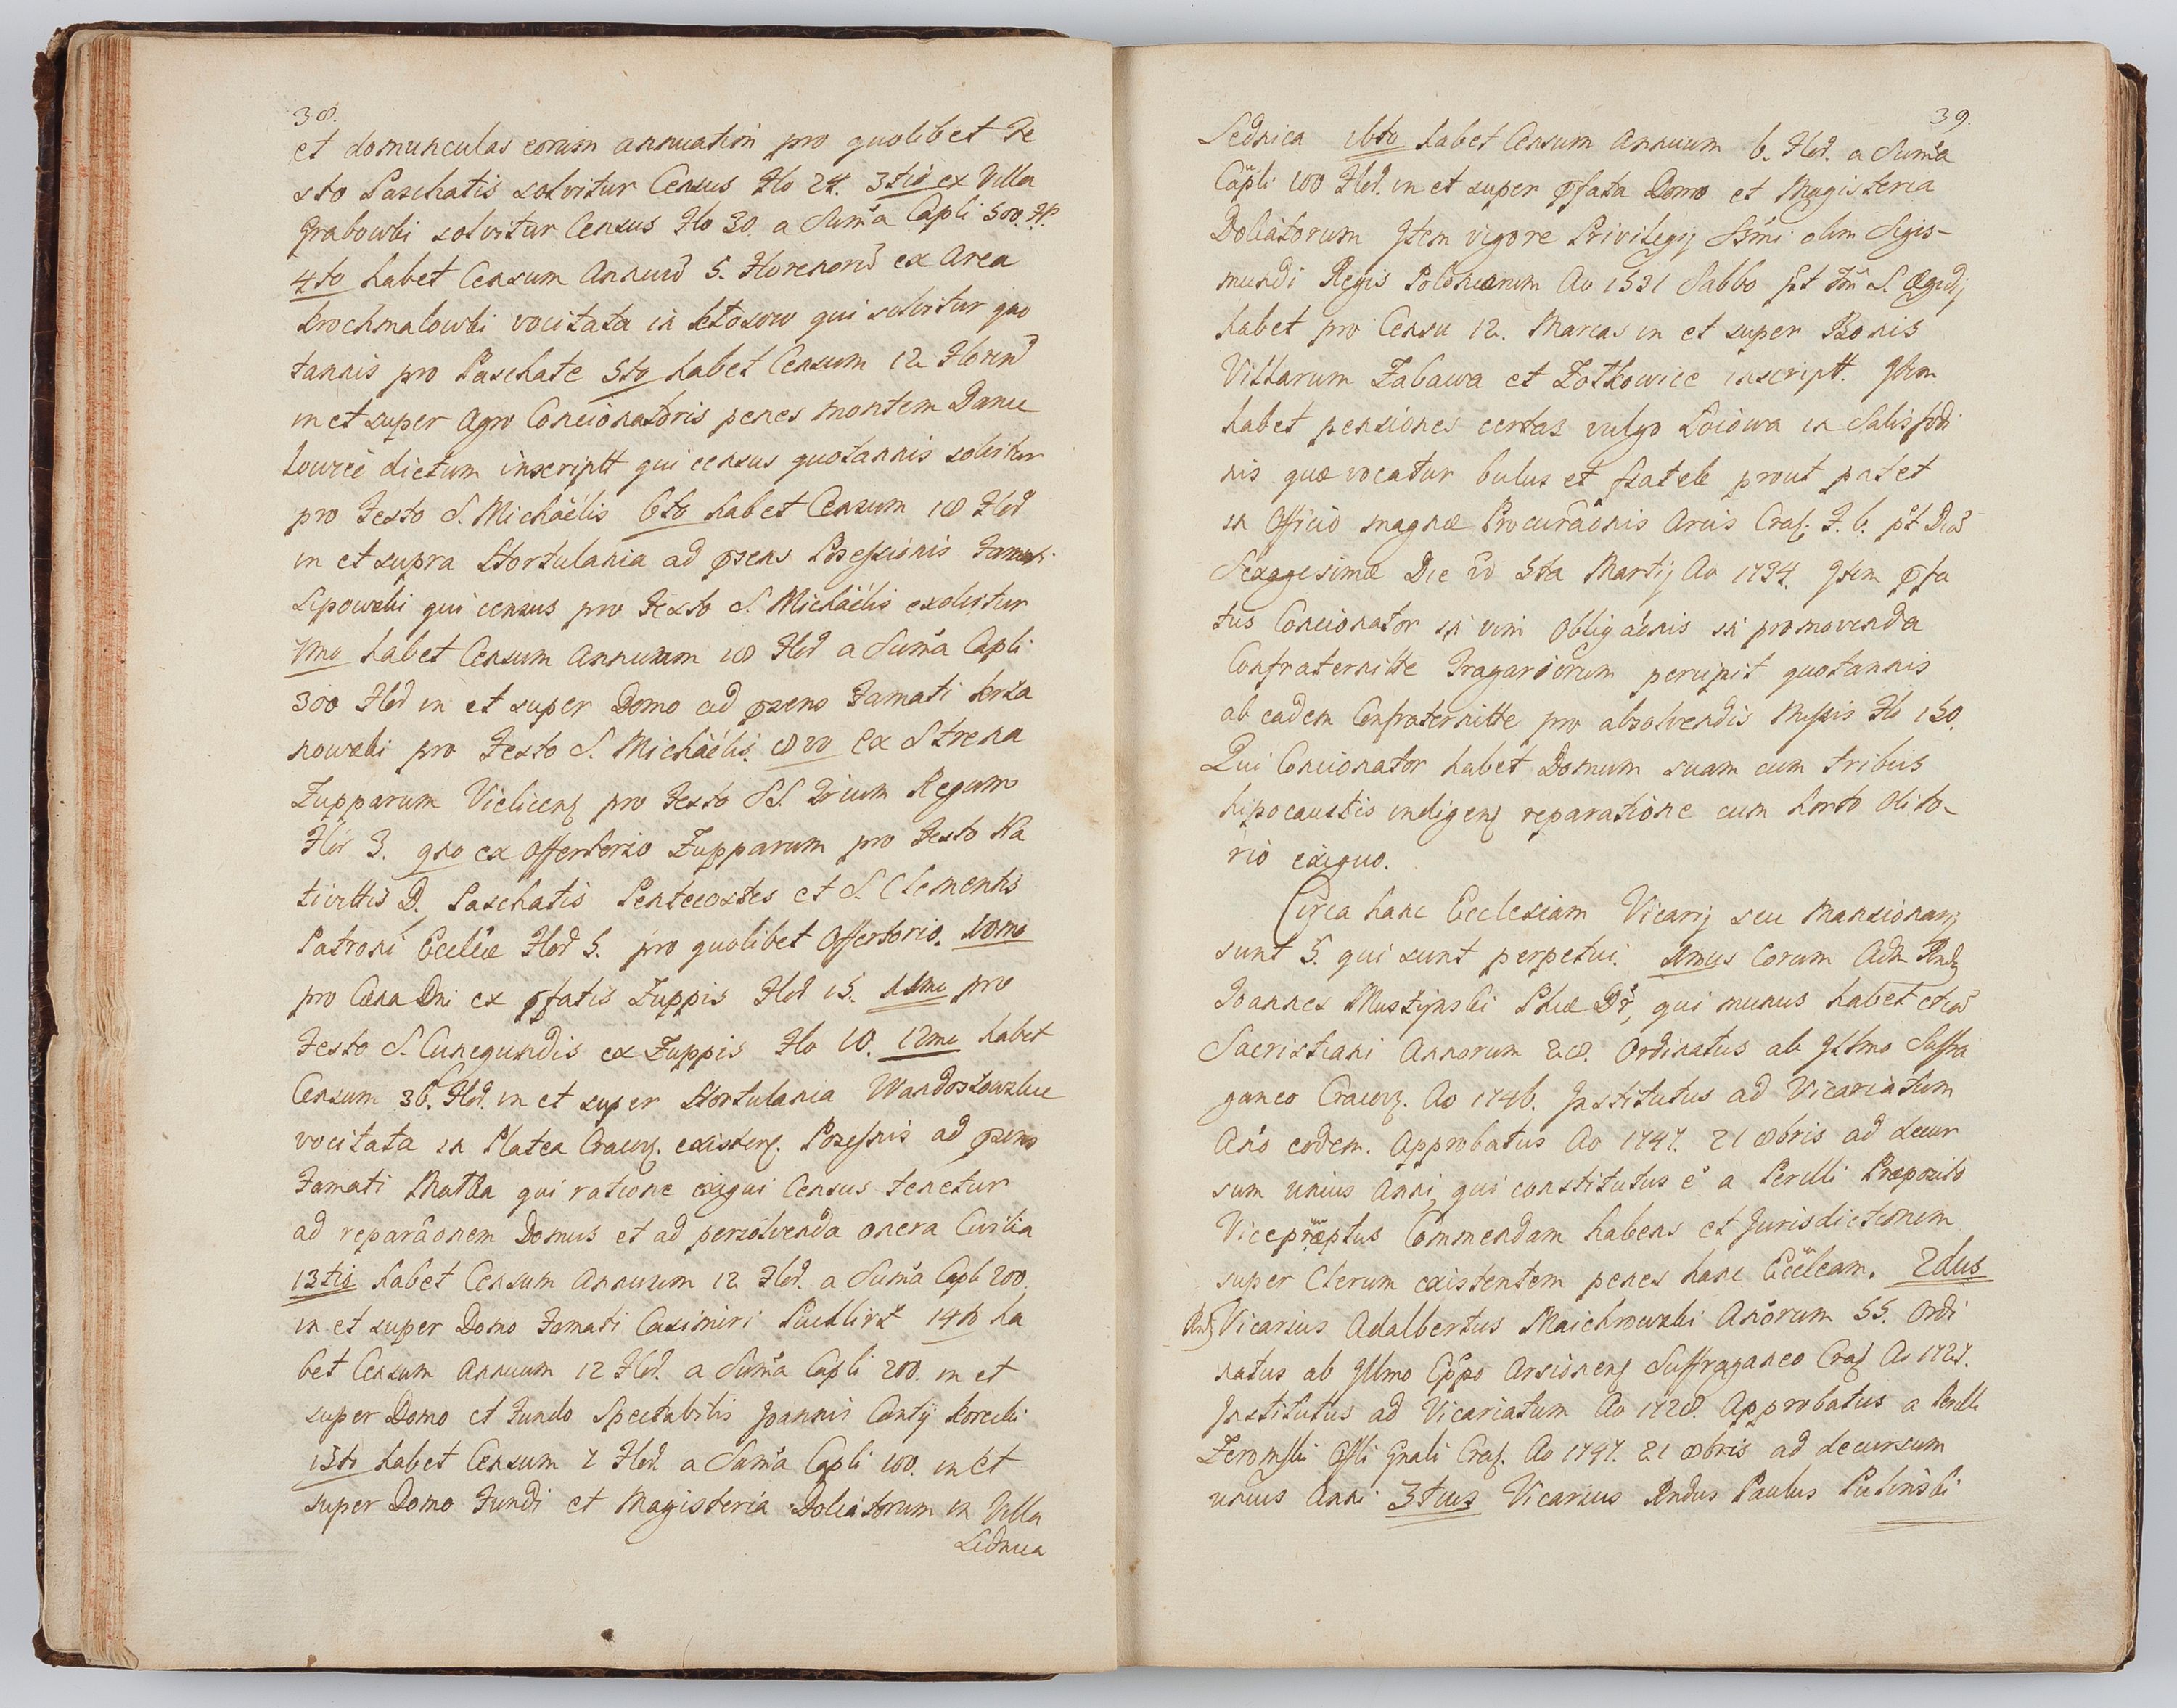 38.
et domunculas eorum annuatim pro quolibet Fe
sto Paschatis solvitur Census Flo 24. 3tio ex Villa
Grabowki solvitur Census Flo 30. a Sum̄a Capli 500. Fl.
4to habet Censum Annuū 5. Florenorū ex Area
Krochmalowki vocitata in Ktosow qui solvitur quo
tannis pro Paschate 5to habet Censum 12 Florenū
in et super Agro Concionatoris penes montem Danie
lowiec dictum inscriptt qui census quotannis solvitur
pro Festo S. Michäelis 6to habet Censum 18 Flor̄
in et supra Hortulania ad p̄sens Possessionis Famati
Lipowski qui census pro Festo S. Michäelis exolvitur
7mo habet Censum Annuum 18 Flor̄ a Sum̄a Capli
300 Flor̄ in et super Domo ad p̄sens Famati Krza
nowski pro Festo S. Michäelis. 8vo Ex Strena
Zupparum Vielicens̄ pro Festo SS. Trium Regum
Flor 3. 9no ex Offertorio Zupparum pro Festo Na
tivittis D. Paschatis Pentecostes et S. Clementis
Patroni Eccl̄iæ Flor̄ 5. pro quolibet Offertorio. 10mo
pro Cæna Dni ex p̄fatis Zuppis Flor̄ 15. 11mo pro
Festo S. Cunegundis ex Zuppis Flo 10. 12mo habet
Censum 36. Flor̄. in et super Hortulania Wandoslowskie
vocitata in Platea Cracov̄. existens̄. Possessnis ad p̄sens
Famati Matka qui ratione exigui Census tenetur
ad reparäonem Domus et ad persolvenda onera Civilia
13tio habet Censum annuum 12 Flor̄. a Sum̄a Capli 200.
in et super Domo Famati Casimiri 14to ha
bet Censum Annuum 12 Flor̄. a Sum̄a Capli 200. in et
super Domo et Fundo Spectabilis Joannis Cantÿ Korecki
15to habet Censum 7 Flor̄. a Sum̄a Capli 100. in et
super Domo Fundi et Magisteria Doliatorum in Villa
Lednica
39.
Lednica 16to habet Censum Annuum 6. Flor̄. a Sum̄a
Capli 100 Flor̄. in et super p̄fata Domo et Magisteria
Doliatorum Item vigore Privilegij Ss̄mi olim Sigis-
mundi Regis Poloniarum Ao 1531 Sabbo p̄t S. Ægidij
habet pro Censu 12. Marcas in et super Bonis
Villarum Zabawa et Zotkowice inscriptt. Item
habet pensiones certas vulgo Loiowa in Salisfodi
nis quæ vocatur bulus et prout patet
in Officio magnæ Procurāonis Arcis Crac̄. F. 6. p̄t Dio
Sexagesimæ Die 5ta Martij Ao 1734. Item p̄fa
tus Concionator in vim Obligāonis in promovenda
Confraternitte Tragariorum percipit quotannis
ab eadem Confraternitte pro absolvendis Missis Flo 150.
Qui Concionator habet Domum suam cum tribus
hipocaustis indigens̄ reparatione cum horto Olito-
rio exiguo.
Circa hanc Ecclesiam Vicarij seu Mansionarij
sunt 5. qui sunt perpetui. 1mus eorum Adm Rndꝫ
Joannes Mustynski Phiæ Dr̄, qui munus habet etiā
Sacristiani Annorum 28. Ordinatus ab Illmo Suffra
ganeo Cracov̄. Ao 1746. Institutus ad Vicariatum
An̄o eodem. Approbatus Ao 1747. 21 8bris ad decur
sum unius Anni, qui constitutus ē a Perilli Præposito
Vicepræptus Commendam habens et Jurisdictionem
super Clerum existentem penes hanc Ecc̄leam. 2dus
Rndꝫ Vicarius Adalbertus Maichrowski Anōrum 55. Ordi
natus ab Illmo Ep̄po Arsionens̄ Suffraganeo Crac̄ Ao 1727.
Institutus ad Vicariatum Ao 1728. Approbatus a Perilli
Zeromski Offli Gnali Crac̄. Ao 1747. 21 8bris ad decursum
unius Anni 3tius Vicarius Rndus Paulus Pulinski